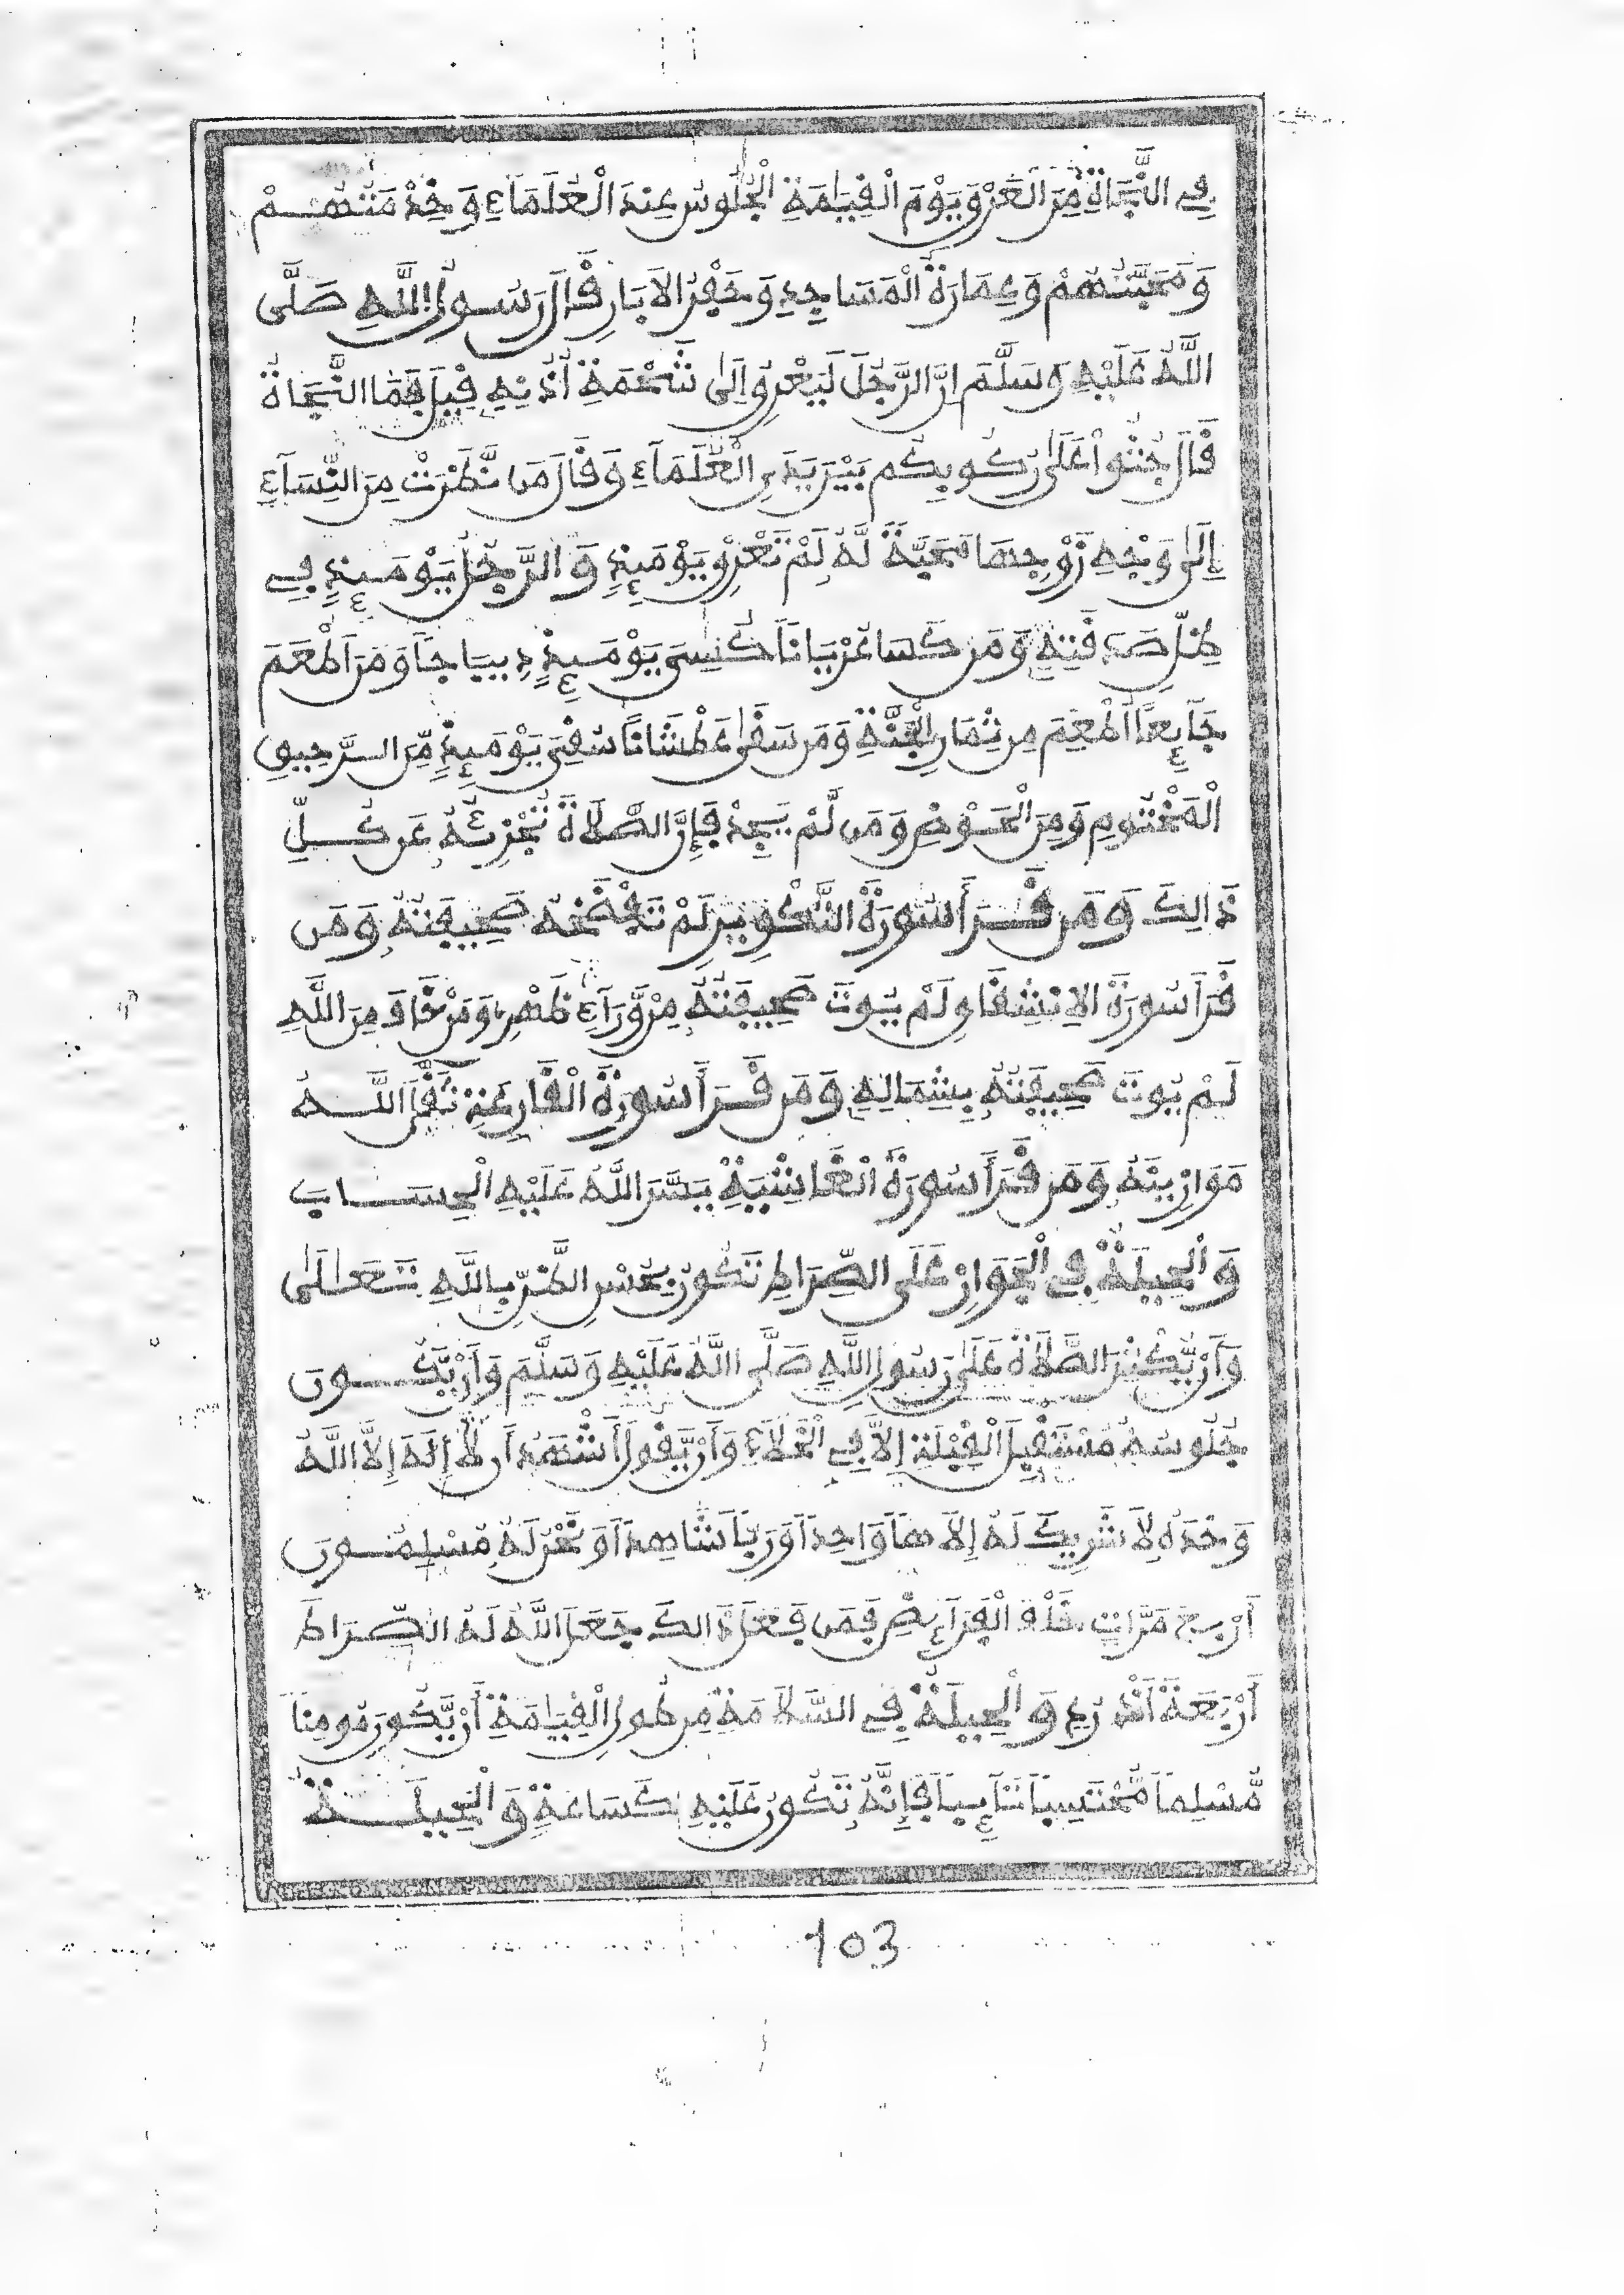 فِي النَّجَاةِ مِنَ الْعَرَقِ يَوْمَ الْقِيَامَةِ الْجُلُوسُ عِندَ الْعُلَمَاءِ وَخِدْمَتُهُمْ
وَمَحَبَّتُهُمْ وَعِمَارَةُ الْمَسَاجِدِ وَحَفْرُ الابَارِ قَالَ رَسُولُ اللَّهِ صَلَّى
اللَّهُ عَلَيْهِ وَسَلَّمَ إِنَّ الرَّجُلَ لَيَعْرَقُ إِلَى شَحْمَةِ أُذُنِهِ قِيلَ فَمَا النَّجَاةُ
قَالَ جُثُوا عَلَى رُكُوبِكُم بَيْنَ يَدَيِ الْعُلَمَاءِ وَقَالَ مَن نَّظَرَتْ مِنَ النِّسَاءِ
إِلَى وَجْهِ زَوْجِهَا مَحَبَّةً لَّهُ لَمْ تَعْرَقْ يَوْمَئِذٍ وَالرَّجُلُ يَوْمَئِذٍ فِي
ظِلِّ صَدَقَتِهِ وَمَن كَسَا عُرْيَانًا كُسِيَ يَوْمَئِذٍ دِيبَاجًا وَمَنَ اطْعَمَ
جَائِعًا اطْعِمَ مِن ثِمَارِ الْجَنَّةِ وَمَن سَقَى عَطْشَانًا سُقِيَ يَوْمَئِذٍ مِّنَ الرَّحِيقِ
الْمَخْتُومِ وَمِنَ الْحَوْضِ وَمَن لَّمْ يَجِدْ فَإِنَّ الصَّلَاةَ تُجْزِئُهُ عَن كُلِّ
ذَالِكَ وَمَن قَرَأَ سُورَةَ التَّكْوِيرِ لَمْ تَفْضَحْهُ صَحِيفَتُهُ وَمَن
قَرَأَ سُورَةَ الانشِقَاقِ لَمْ يُوتَ صَحِيفَتَهُ مِن وَّرَاءِ ظَهْرِهِ وَمَنْ خَافَ مِنَ اللَّهِ
لَمْ يُوتَ صَحِيفَتَهُ بِشِمَالِهِ وَمَن قَرَأَ سُورَةَ الْقَارِعَةِ ثَقَّلَ اللَّهُ
مَوَازِينَهُ وَمَن قَرَأَ سُورَةَ الْغَاشِيَةِ يَسَّرَ اللَّهُ عَلَيْهِ الْحِسَابَ
وَالْحِيلَةُ فِي الْجَوَازِ عَلَى الصِّرَاطِ تَكُونُ بِحُسْنِ الظَّنِّ بِاللَّهِ تَعَالَى
وَأَن يُّكْثِرَ الصَّلَاةَ عَلَى رَسُولِ اللَّهِ صَلَّى اللَّهُ عَلَيْهِ وَسَلَّمَ وَأَن يَّكُونَ
جُلُوسُهُ مُسْتَقْبِلَ الْقِبْلَةِ إِلاَّ فِي الْخَلَاءِ وَأَن يَّقُولَ أَشْهَدُ أَن لاَّ إِلَهَ إِلاَّ اللَّهُ
وَحْدَهُ لاَ شَرِيكَ لَهُ إِلَاهًا وَاحِدًا وَرَبًّا شَاهِدًا وَنَحْنُ لَهُ مُسْلِمُونَ
أَرْبَعَ مَرَّاتٍ خَلْفَ الْفَرَائِضِ فَمَن فَعَلَ ذَالِكَ جَعَلَ اللَّهُ لَهُ الصِّرَاطَ
أَرْبَعَةَ أَذْرُعٍ وَالْحِيلَةُ فِي السَّلَامَةِ مِن طُولِ الْقِيَامَةِ أَن يَّكُونَ مُومِنًا
مُّسْلِمًا مُّحْتَسِبًا تَائِبًا فَإِنَّهُ تَكُونُ عَلَيْهِ كَسَاعَةٍ وَالْحِيلَةُ
103